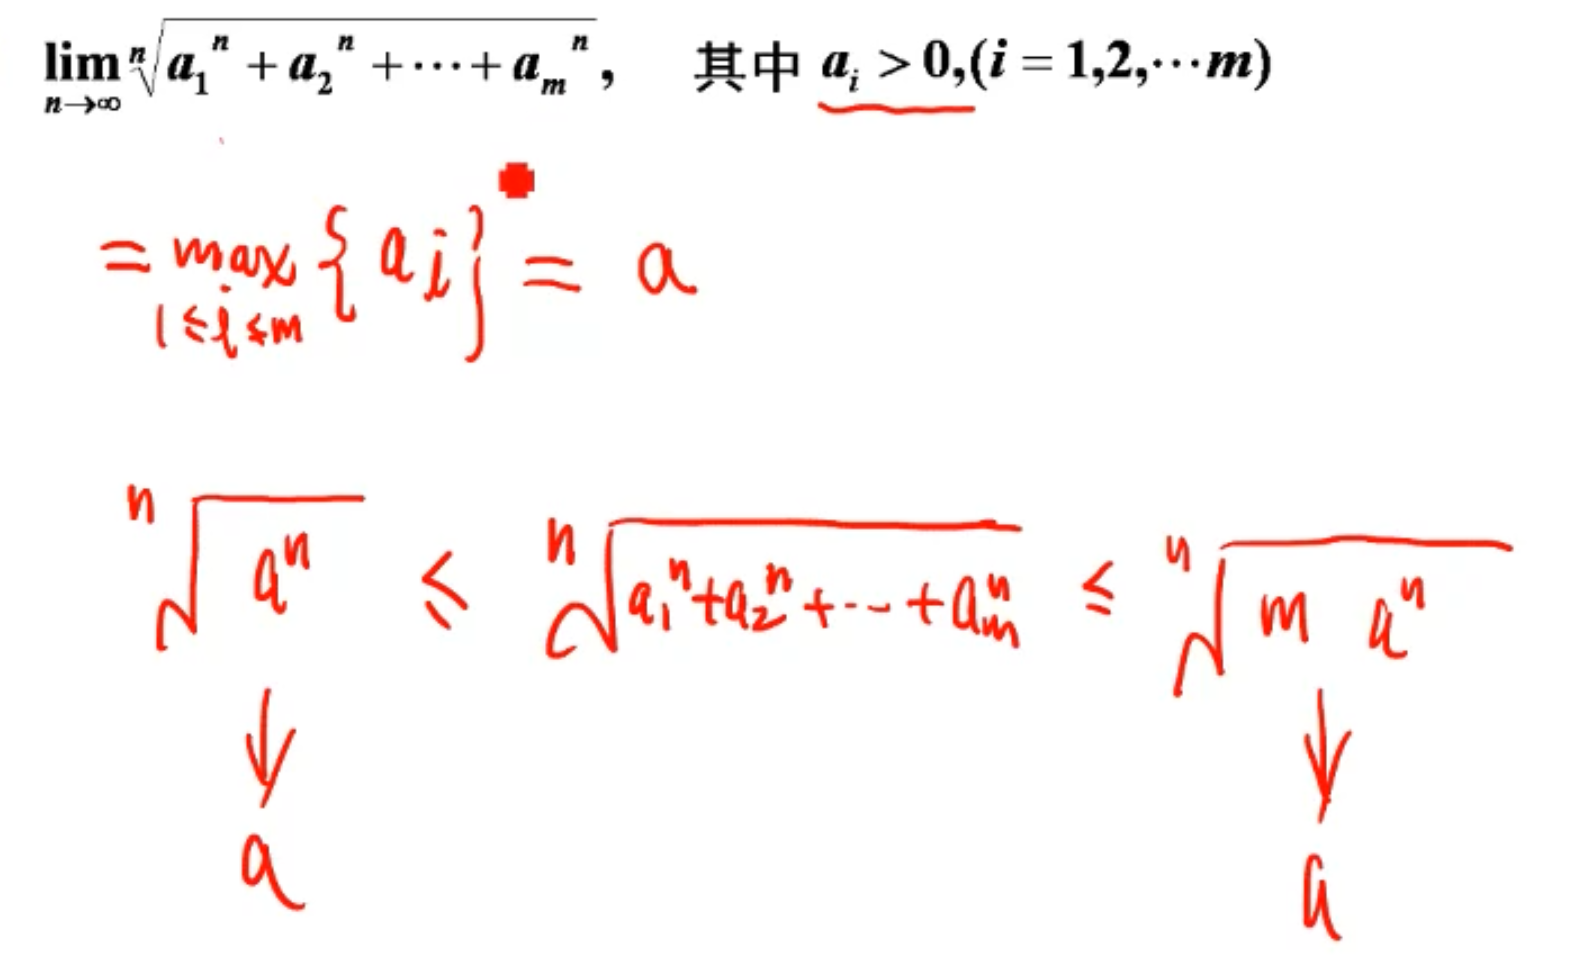 lim n→∞ ⁿ√(a₁ⁿ + a₂ⁿ + ⋯ + aₘⁿ), 其中 aᵢ > 0,(i = 1,2,⋯m)
= max 1≤i≤m {ai} = a
ⁿ√(aⁿ) ≤ ⁿ√(a₁ⁿ+a₂ⁿ+⋯+aₘⁿ) ≤ ⁿ√(m aⁿ)
↓ ↓
a a